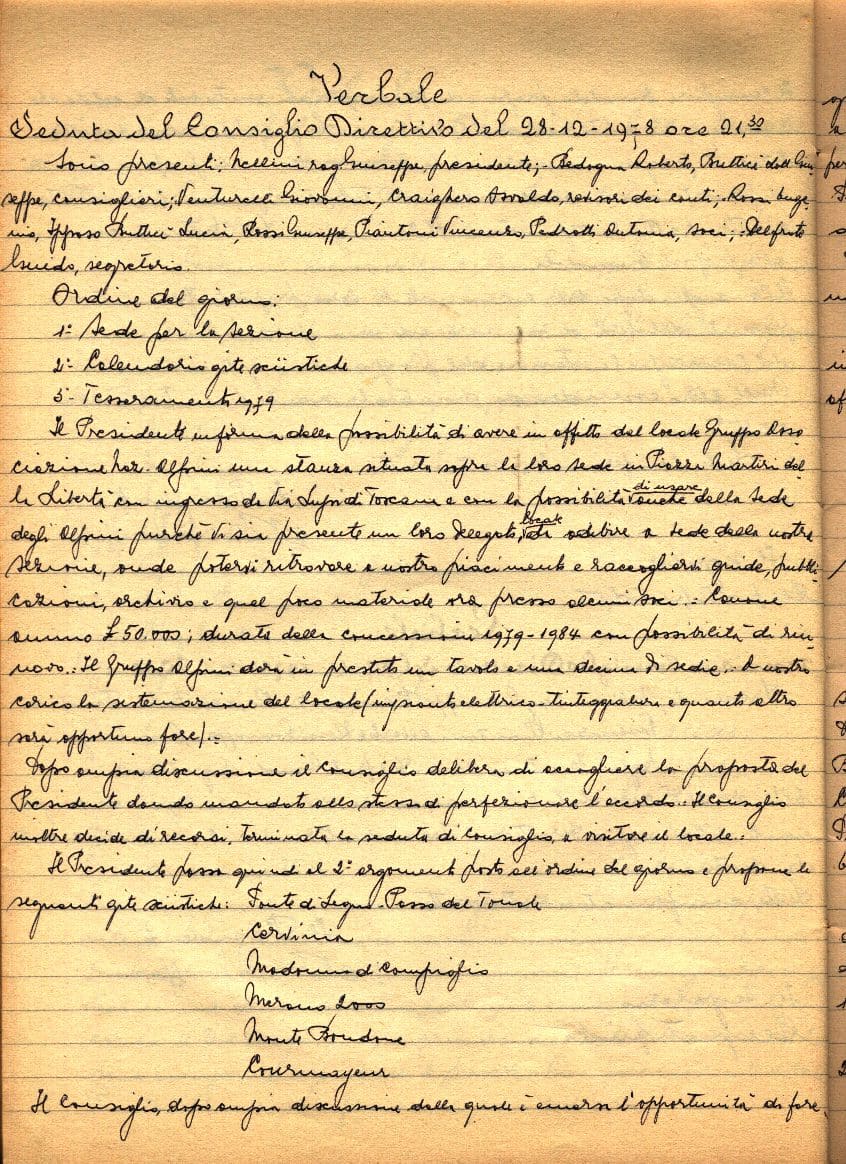 Verbale
Seduta del Consiglio Direttivo del 28-12-1978 ore 21,30
Sono presenti; Nellini rag Giuseppe, presidente; - Bedogna Roberto, Buttici dott Giu
seppe, consiglieri; Venturelli Giovanni, Craighero Osvaldo, revisori dei conti; - Rossi Euge
nio, Buttici Lucia, Rossi Giuseppe, Piantoni Vincenzo, Pedrotti Antonia, soci; - Delfrate
Guido, segretario.
Ordine del giorno:
1° Sede per la sezione
2° Calendario gite sciistiche
3° Tesseramenti 1979
Il Presidente informa della possibilità di avere in affitto dal locale Gruppo Asso
ciazione Naz. Alpini una stanza situata sopra la loro sede in Piazza Martiri del
la Libertà con ingresso da Via Lupi di Toscana e con la possibilità di usare anche della Sede
degli Alpini purché vi sia presente un loro Delegato, locale da adibire a sede della nostra
sezione, onde potervi ritrovare a nostro piacimento e raccogliervi guide, pubbli
cazioni, archivio e quel poco materiale ora presso alcuni soci .- Canone
annuo £ 50.000; durata della concessione 1979-1984 con possibilità di rin
novo.- Il Gruppo Alpini darà in prestito un tavolo e una decina di sedie.- A nostro
carico la sistemazione del locale /impianto elettrico - tinteggiatura e quanto altro
sarà opportuno fare/.-
Dopo ampia discussione il Consiglio delibera di accogliere la proposta del
Presidente dando mandato allo stesso di perfezionare l'accordo.- Il Consiglio
inoltre decide di recarsi, terminata la seduta di Consiglio, a visitare il locale.-
Il Presidente passa quindi al 2° argomento posto all'ordine del giorno e propone le
seguenti gite sciistiche: Ponte di Legno - Passo del Tonale
Cervinia
Madonna di Campiglio
Merano 2000
Monte Bondone
Courmayeur
Il Consiglio, dopo ampia discussione dalla quale è emersa l'opportunità di fare